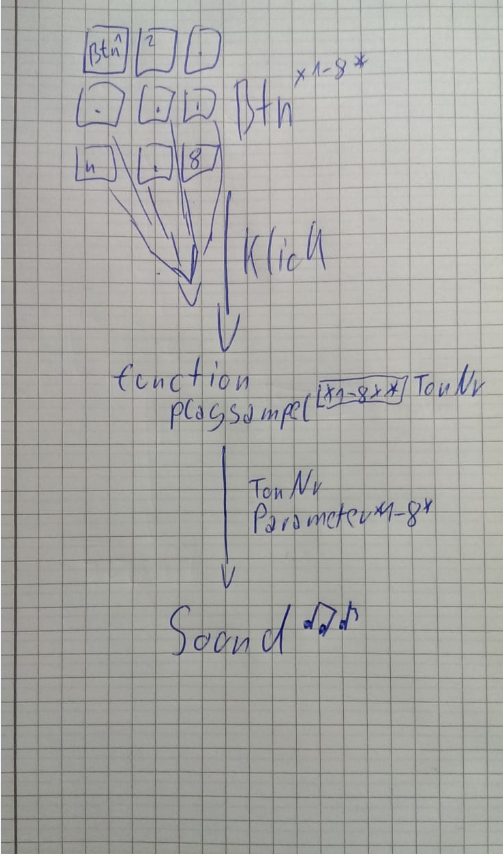 Btn^1 2 .
. . 1
n . 8
Btn *1-8*
Klick
function
playsampel( [*1-8**] TonNr
TonNr
Parameter *1-8*
Sound ♫♪